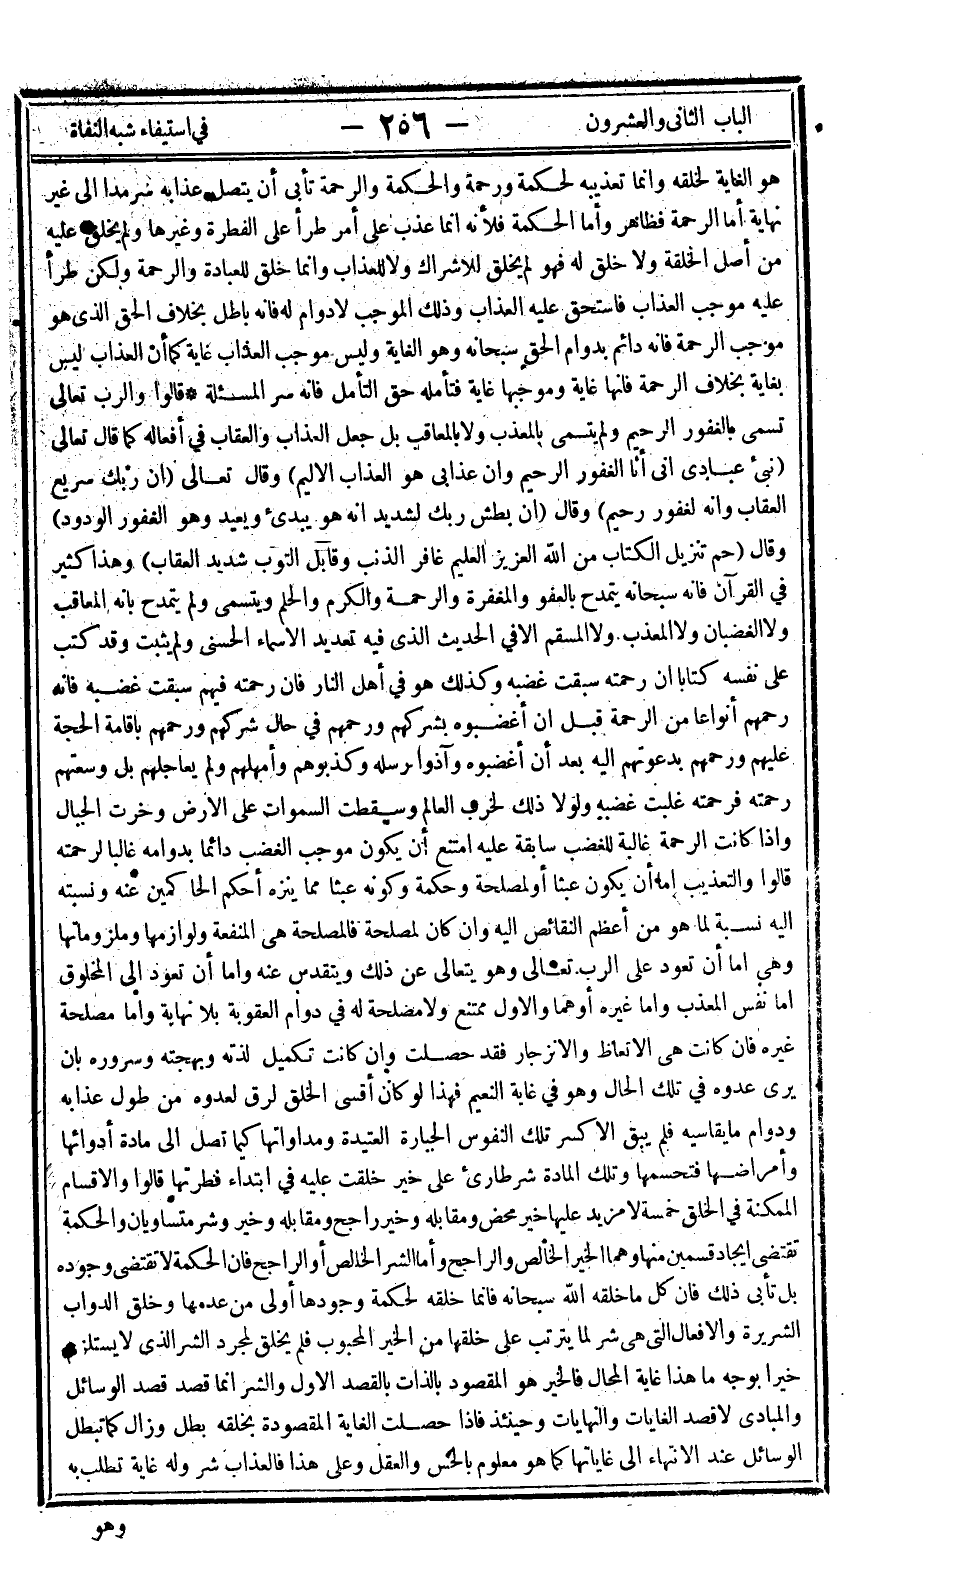 الباب الثانى والعشرون — ٢٥٦ — فى استيفاء شبه النفاة
هو الغاية لخلقه وانما تعذيبه لحكمة ورحمة والحكمة والرحمة تأبى أن يتصل عذابه سرمدا الى غير
نهاية أما الرحمة فظاهر وأما الحكمة فلأنه انما عذب على أمر طرأ على الفطرة وغيرها ولم يخلق عليه
من أصل الخلقة ولا خلق له فهو لم يخلق للاشراك ولا للعذاب وانما خلق للعبادة والرحمة ولكن طرأ
عليه موجب العذاب فاستحق عليه العذاب وذلك الموجب لا دوام له فانه باطل بخلاف الحق الذى هو
موجب الرحمة فانه دائم بدوام الحق سبحانه وهو الغاية وليس موجب العذاب غاية كما أن العذاب ليس
بغاية بخلاف الرحمة فانها غاية وموجبها غاية فتأمله حق التأمل فانه سر المسئلة * قالوا والرب تعالى
تسمى بالغفور الرحيم ولم يتسمى بالمعذب ولا بالمعاقب بل جعل العذاب والعقاب في أفعاله كما قال تعالى
(نبئ عبادى انى أنا الغفور الرحيم وان عذابى هو العذاب الاليم) وقال تعالى (ان ربك سريع
العقاب وانه لغفور رحيم) وقال (ان بطش ربك لشديد انه هو يبدئ ويعيد وهو الغفور الودود)
وقال (حم تنزيل الكتاب من الله العزيز العليم غافر الذنب وقابل التوب شديد العقاب) وهذا كثير
في القرآن فانه سبحانه يتمدح بالعفو والمغفرة والرحمة والكرم والحلم ويتسمى ولم يتمدح بانه المعاقب
ولا الغضبان ولا المعذب ولا المسقم الا في الحديث الذى فيه تعديد الاسماء الحسنى ولم يثبت وقد كتب
على نفسه كتابا ان رحمته سبقت غضبه وكذلك هو في أهل النار فان رحمته فيهم سبقت غضبه فانه
رحمهم أنواعا من الرحمة قبل ان أغضبوه بشركهم ورحمهم في حال شركهم ورحمهم باقامة الحجة
عليهم ورحمهم بدعوتهم اليه بعد أن أغضبوه وآذوا رسله وكذبوهم وأمهلهم ولم يعاجلهم بل وسعتهم
رحمته فرحمته غلبت غضبه ولولا ذلك لخرب العالم وسقطت السموات على الارض وخرت الجبال
واذا كانت الرحمة غالبة للغضب سابقة عليه امتنع أن يكون موجب الغضب دائما بدوامه غالبا لرحمته
قالوا والتعذيب إما أن يكون عبثا أولمصلحة وحكمة وكونه عبثا مما ينزه أحكم الحاكمين عنه ونسبته
اليه نسبة لما هو من أعظم النقائص اليه وان كان لمصلحة فالمصلحة هى المنفعة ولوازمها وملزوماتها
وهي اما أن تعود على الرب تعالى وهو يتعالى عن ذلك ويتقدس عنه واما أن تعود الى المخلوق
اما نفس المعذب واما غيره أوهما والاول ممتنع ولا مصلحة له في دوام العقوبة بلا نهاية وأما مصلحة
غيره فان كانت هى الاتعاظ والانزجار فقد حصلت وان كانت تكميل لذته وبهجته وسروره بان
يرى عدوه في تلك الحال وهو في غاية النعيم فهذا لو كان أقسى الخلق لرق لعدوه من طول عذابه
ودوام ما يقاسيه فلم يبق الا كسر تلك النفوس الجبارة العتيدة ومداواتها كيما تصل الى مادة أدوائها
وأمراضها فتحسمها وتلك المادة شر طارئ على خير خلقت عليه في ابتداء فطرتها قالوا والاقسام
الممكنة في الخلق خمسة لا مزيد عليها خير محض ومقابله وخير راجح ومقابله وخير وشر متساويان والحكمة
تقتضى ايجاد قسمين منها وهما الخير الخالص والراجح وأما الشر الخالص أو الراجح فان الحكمة لا تقتضى وجوده
بل تأبى ذلك فان كل ما خلقه الله سبحانه فانما خلقه لحكمة وجودها أولى من عدمها وخلق الدواب
الشريرة والافعال التى هى شر لما يترتب على خلقها من الخير المحبوب فلم يخلق لمجرد الشر الذى لا يستلزم
خيرا بوجه ما هذا غاية المحال فالخير هو المقصود بالذات بالقصد الاول والشر انما قصد قصد الوسائل
والمبادى لا قصد الغايات والنهايات وحينئذ فاذا حصلت الغاية المقصودة بخلقه بطل وزال كما تبطل
الوسائل عند الانتهاء الى غاياتها كما هو معلوم بالحس والعقل وعلى هذا فالعذاب شر وله غاية تطلب به
وهو